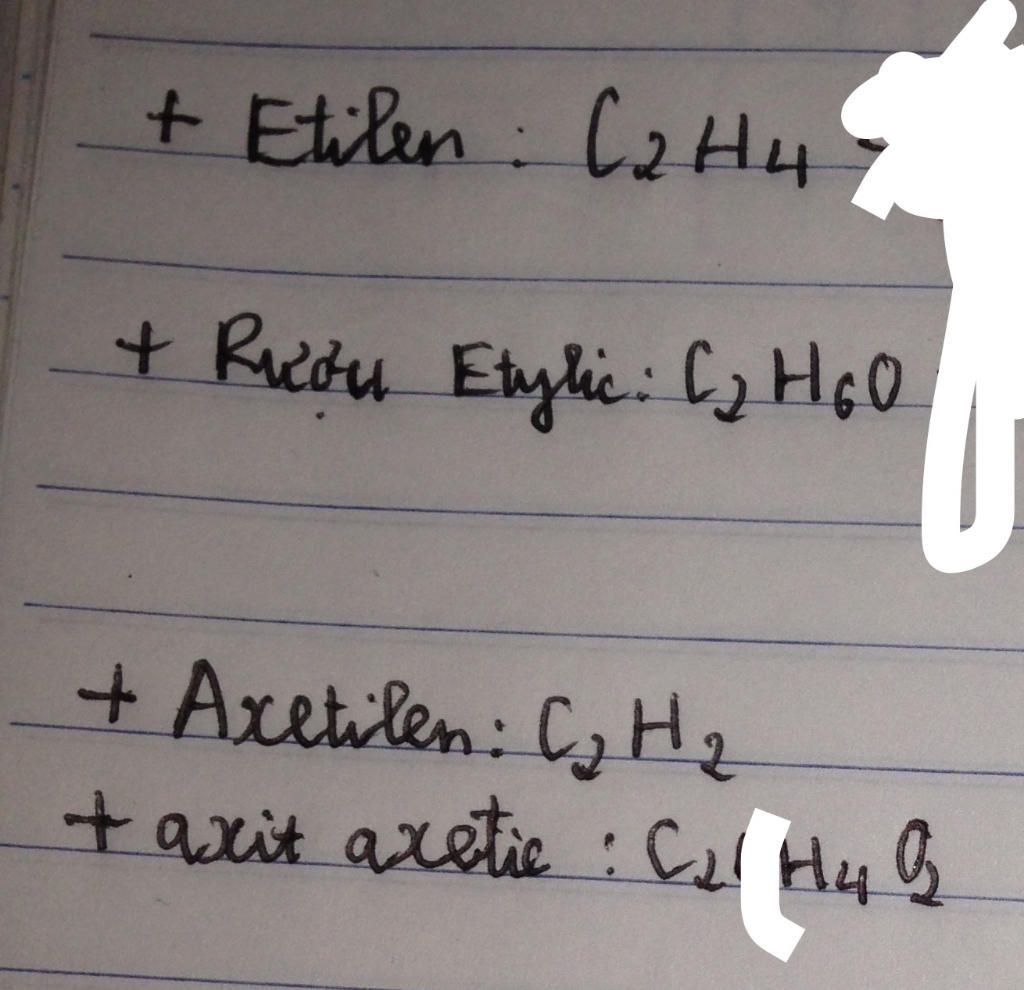 + Etilen : C2H4
+ Rượu Etylic: C2H6O
+ Axetilen: C2H2
+ axit axetic : C2H4O2